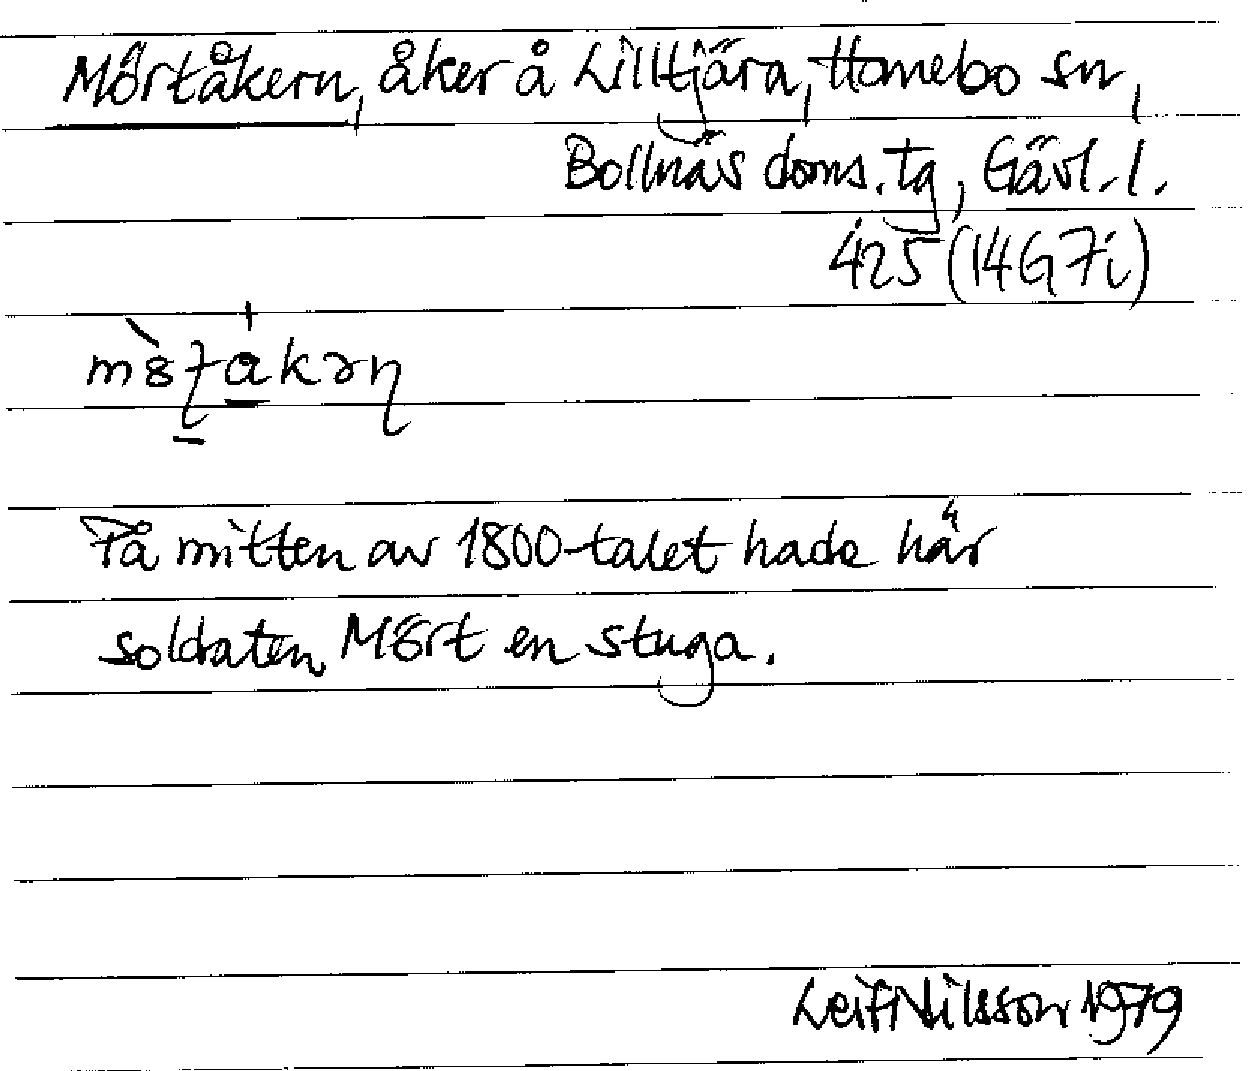 Mörtåkern, åker å Lilltjära, Hanebo sn,
Bollnäs doms. tg, Gävl. l.
425 (14G 7i)
På mitten av 1800-talet hade här
soldaten Mört en stuga.
Leif Nilsson 1979